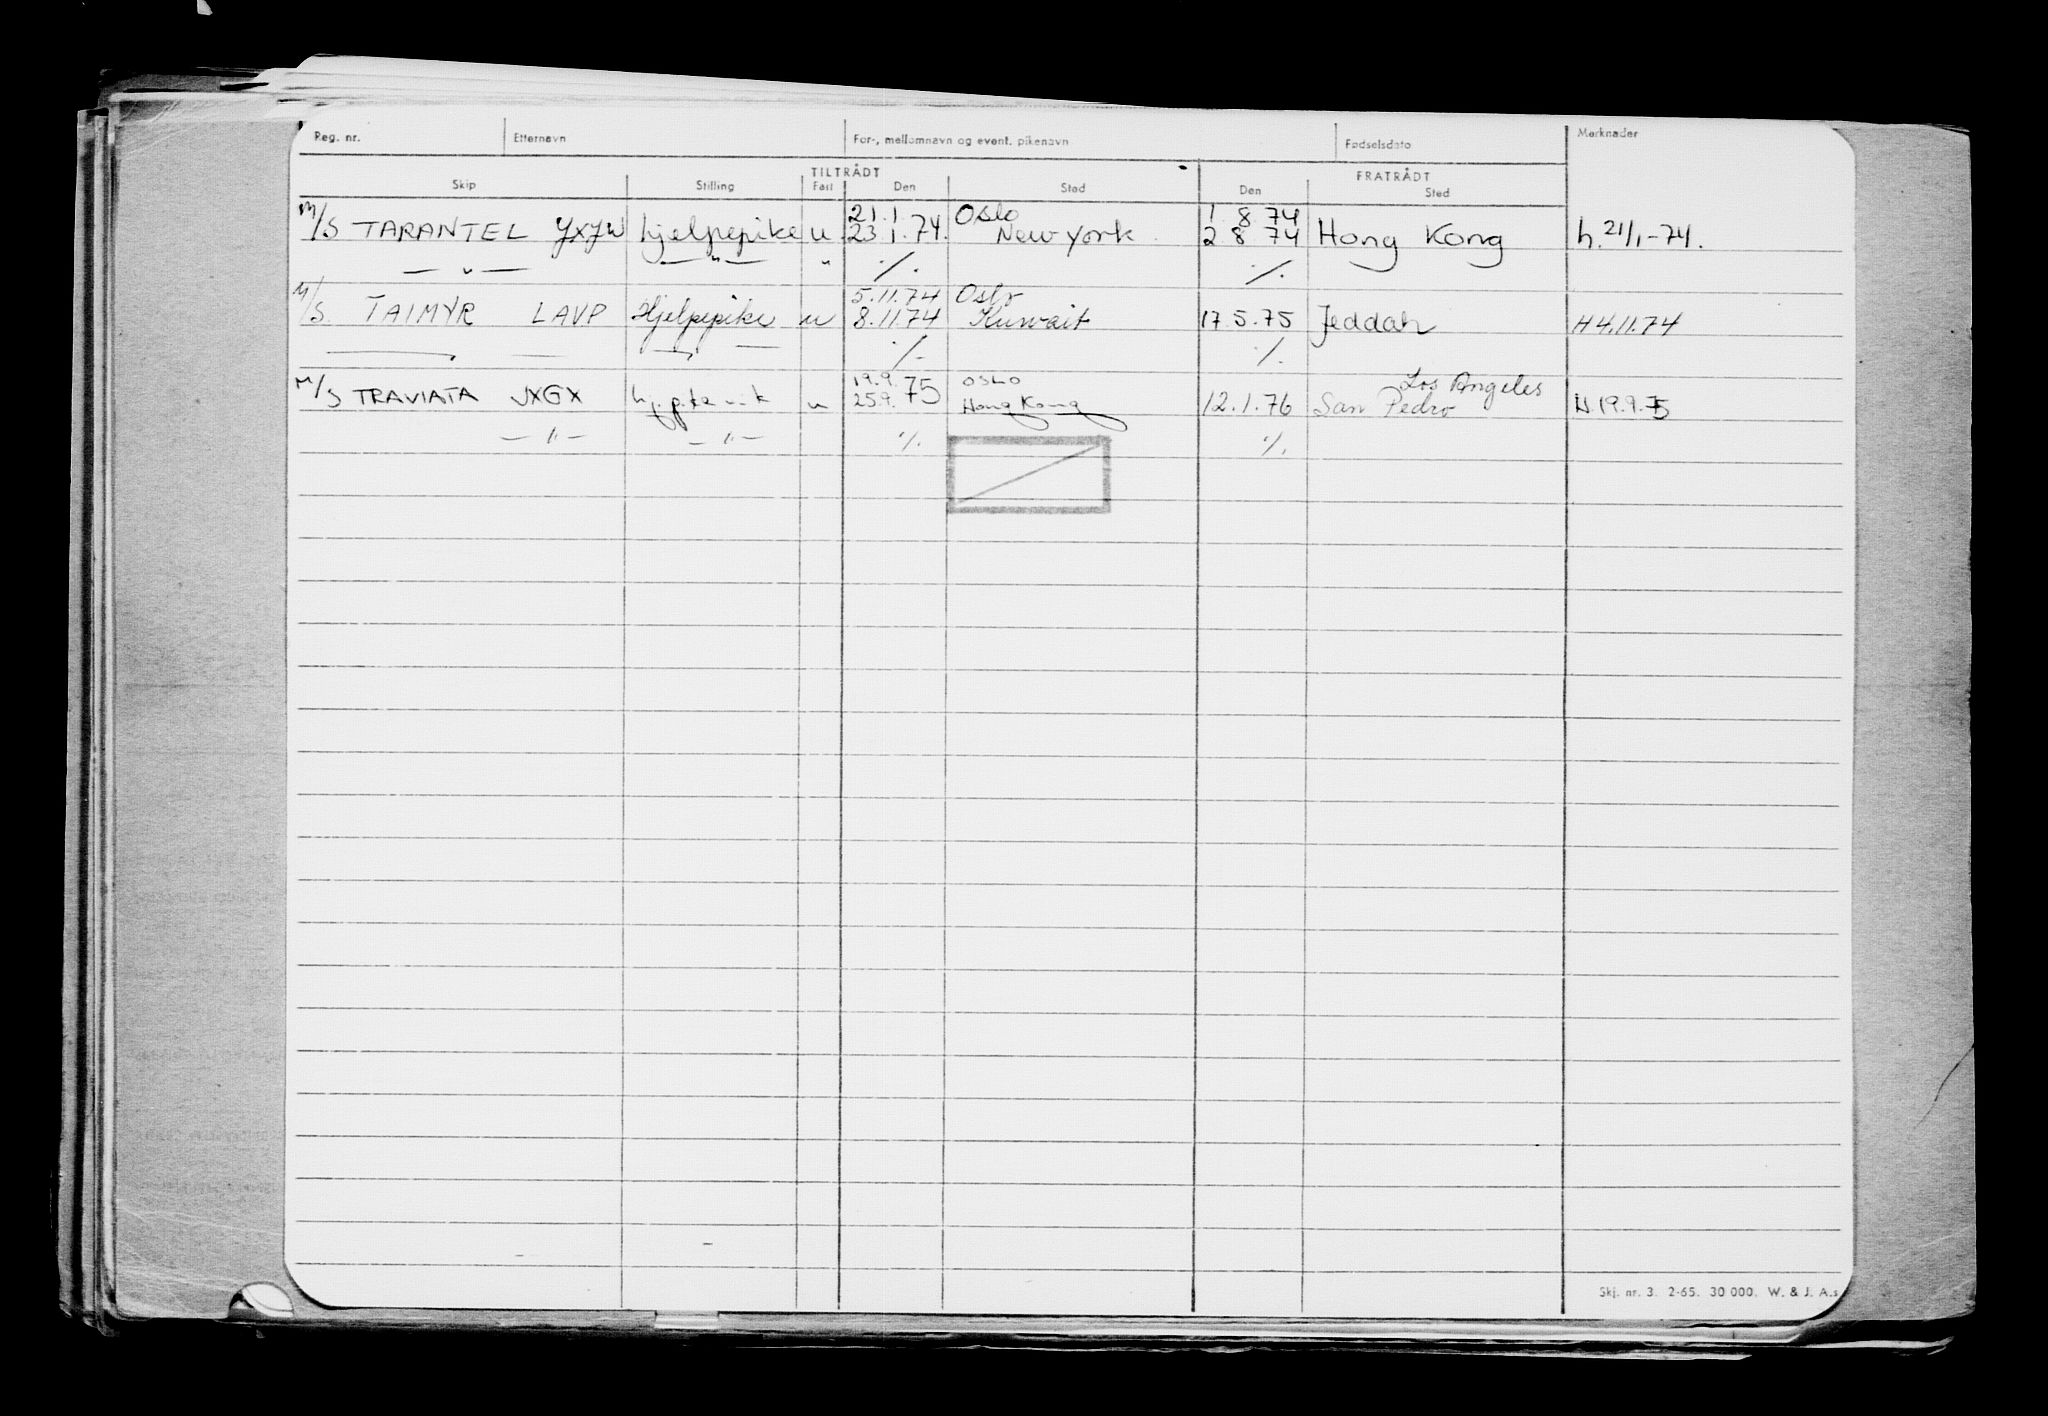 Reg. nr. Etternavn For-, mellomnavn og event. pikenavn Fødselsdato Merknader
TILTRÅDT FRATRÅDT
Skip Stilling Fart Den Sted Den Sted
21.1. Oslo 1. 8. 74
M/S TARANTEL YXJW hjelpepike u 23.1.74. New York 2 8 74 Hong Kong h.21/1-74.
— " — — " — " ./. ./.
5.11.74 Oslo
M/S. TAIMYR LAVP Hjelpepike u 8.11.74 Kuwait 17.5.75 Jeddah H 4.11.74
./. ./.
19.9. 75 OSLO Los Angeles
M/S TRAVIATA JXGX u 25.9. Hong Kong 12.1.76 San Pedro H.19.9.75
— " — — " — ./. ./.
Skj. nr. 3. 2-65. 30 000. W. & J. A.s